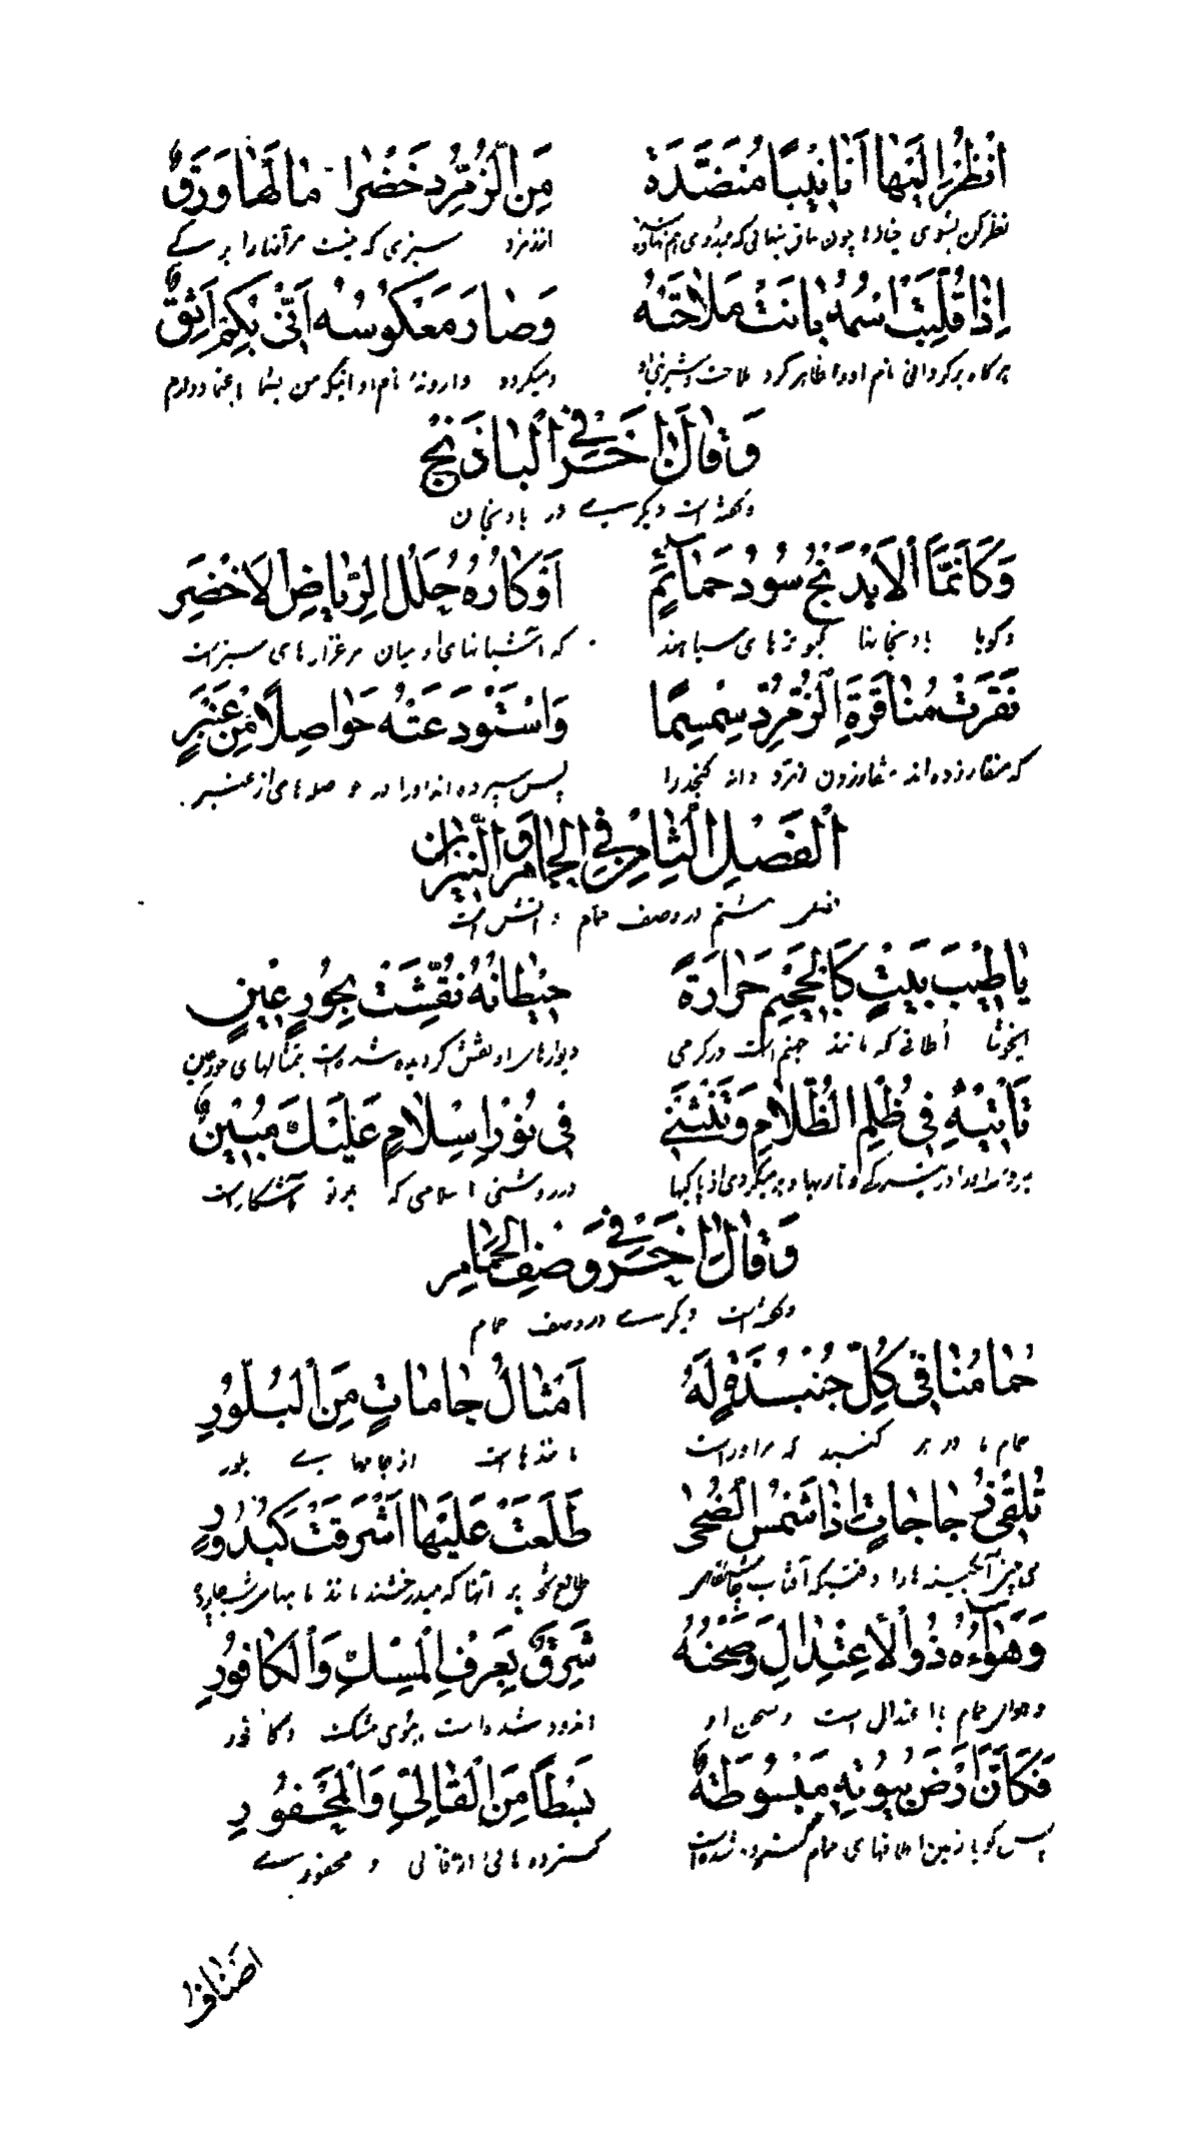 اُنْظُرْ اِلَيْهٰا اَنٰابِيْبًا مُنَضَّدَةً مِنَ الزُّمُرُّدِ خَضْرًا مٰا لَهٰا وَرَقٌ
نظر کن بسوی خیارها چون ساق
اندزمرد سبزی که نیست مر آنها را برگی
اِذٰا قَلَبْتَ اسْمَهُ بٰانَتْ مَلٰاحَتُهُ وَصٰارَ مَعْكُوسُهُ اَنّٰى بِكُمْ اَثِقُ
هرگاه برگردانی نام او را ظاهر گردد ملاحت و شیرینی او
و میگردد وارونهٔ نام او اینکه من بشما اعتماد دارم
وَقٰالَ اٰخَرُ فِي الْبٰاذَنْجِ
و گفته است دیگری در بادنجان
وَكَاَنَّمَا الْاَبْذَنْجُ سُودُ حَمٰآئِمٍ اَوْكٰارُهُ حُلَلُ الرِّيٰاضِ الْاَخْضَرِ
و گویا بادنجانها کبوترهای سیاهند
که آشیانهای او میان مرغزارهای سبز است
نَقَرَتْ مُنٰاقَرَةَ الزُّمُرُّدِ سِمْسِمًا وَاسْتَوْدَعَتْهُ حَوٰاصِلًا مِنْ عَنْبَرٍ
که منقار زده‌اند دانه کنجد را
پس سپرده‌اند او را در حوصلهای از عنبر
اَلْفَصْلُ الثّٰامِنُ فِي الْحَمّٰامِ وَالنّيرٰانِ
فصل هشتم در وصف حمام و آتش است
يٰا طِيبَ بَيْتٍ كَالْجَحِيْمِ حَرٰارَةً حِيْطٰانُهُ نُقِّشَتْ بِحُورٍ عِيْنٍ
ایخوشا اطاقی که مانند جهنم است در گرمی
دیوارهای او نقش گردیده شده است بتمثالهای حورعین
تَأْتِيْهِ فِي ظُلَمِ الظَّلٰامِ وَتَنْثَنِي فِي نُوْرِ اِسْلٰامٍ عَلَيْكَ مُبِيْنٌ
در روشنی اسلامی که بر تو آشکار است
وَقٰالَ اٰخَرُ فِي وَصْفِ الْحَمّٰامِ
و گفته است دیگری در وصف حمام
حَمّٰامُنٰا فِي كُلِّ جُنْبُذَةٍ لَهُ اَمْثٰالُ جٰامٰاتٍ مِنَ الْبُلُّوْرِ
حمام ما در هر گنبد که مر او راست
مانندهاست از جامهای بلور
تُلْقٰى زُجٰاجٰاتٍ اِذٰا شَمْسُ الضُّحٰى طَلَعَتْ عَلَيْهٰا اَشْرَقَتْ كَبُدُوْرٍ
طالع شود بر آنها که میدرخشند مانند
وَهَوٰآءُهُ ذُو الْاِعْتِدٰالِ وَصَحْنُهُ شَرِقٌ بِعَرْفِ الْمِسْكِ وَالْكٰافُوْرِ
و هوای حمام با اعتدال است و صحن او
شده است ببوی مشک و کافور
فَكَاَنَّ اَرْضَ بُيُوْتِهِ مَبْسُوطَةٌ بَسْطًا مِنَ الْقٰالِيِّ وَالْمَحْفُوْرِ
پس گویا زمین اطاقهای حمام گسترده شده است
گسترده هائی از قالی و محفوری
اَصْنٰافُ